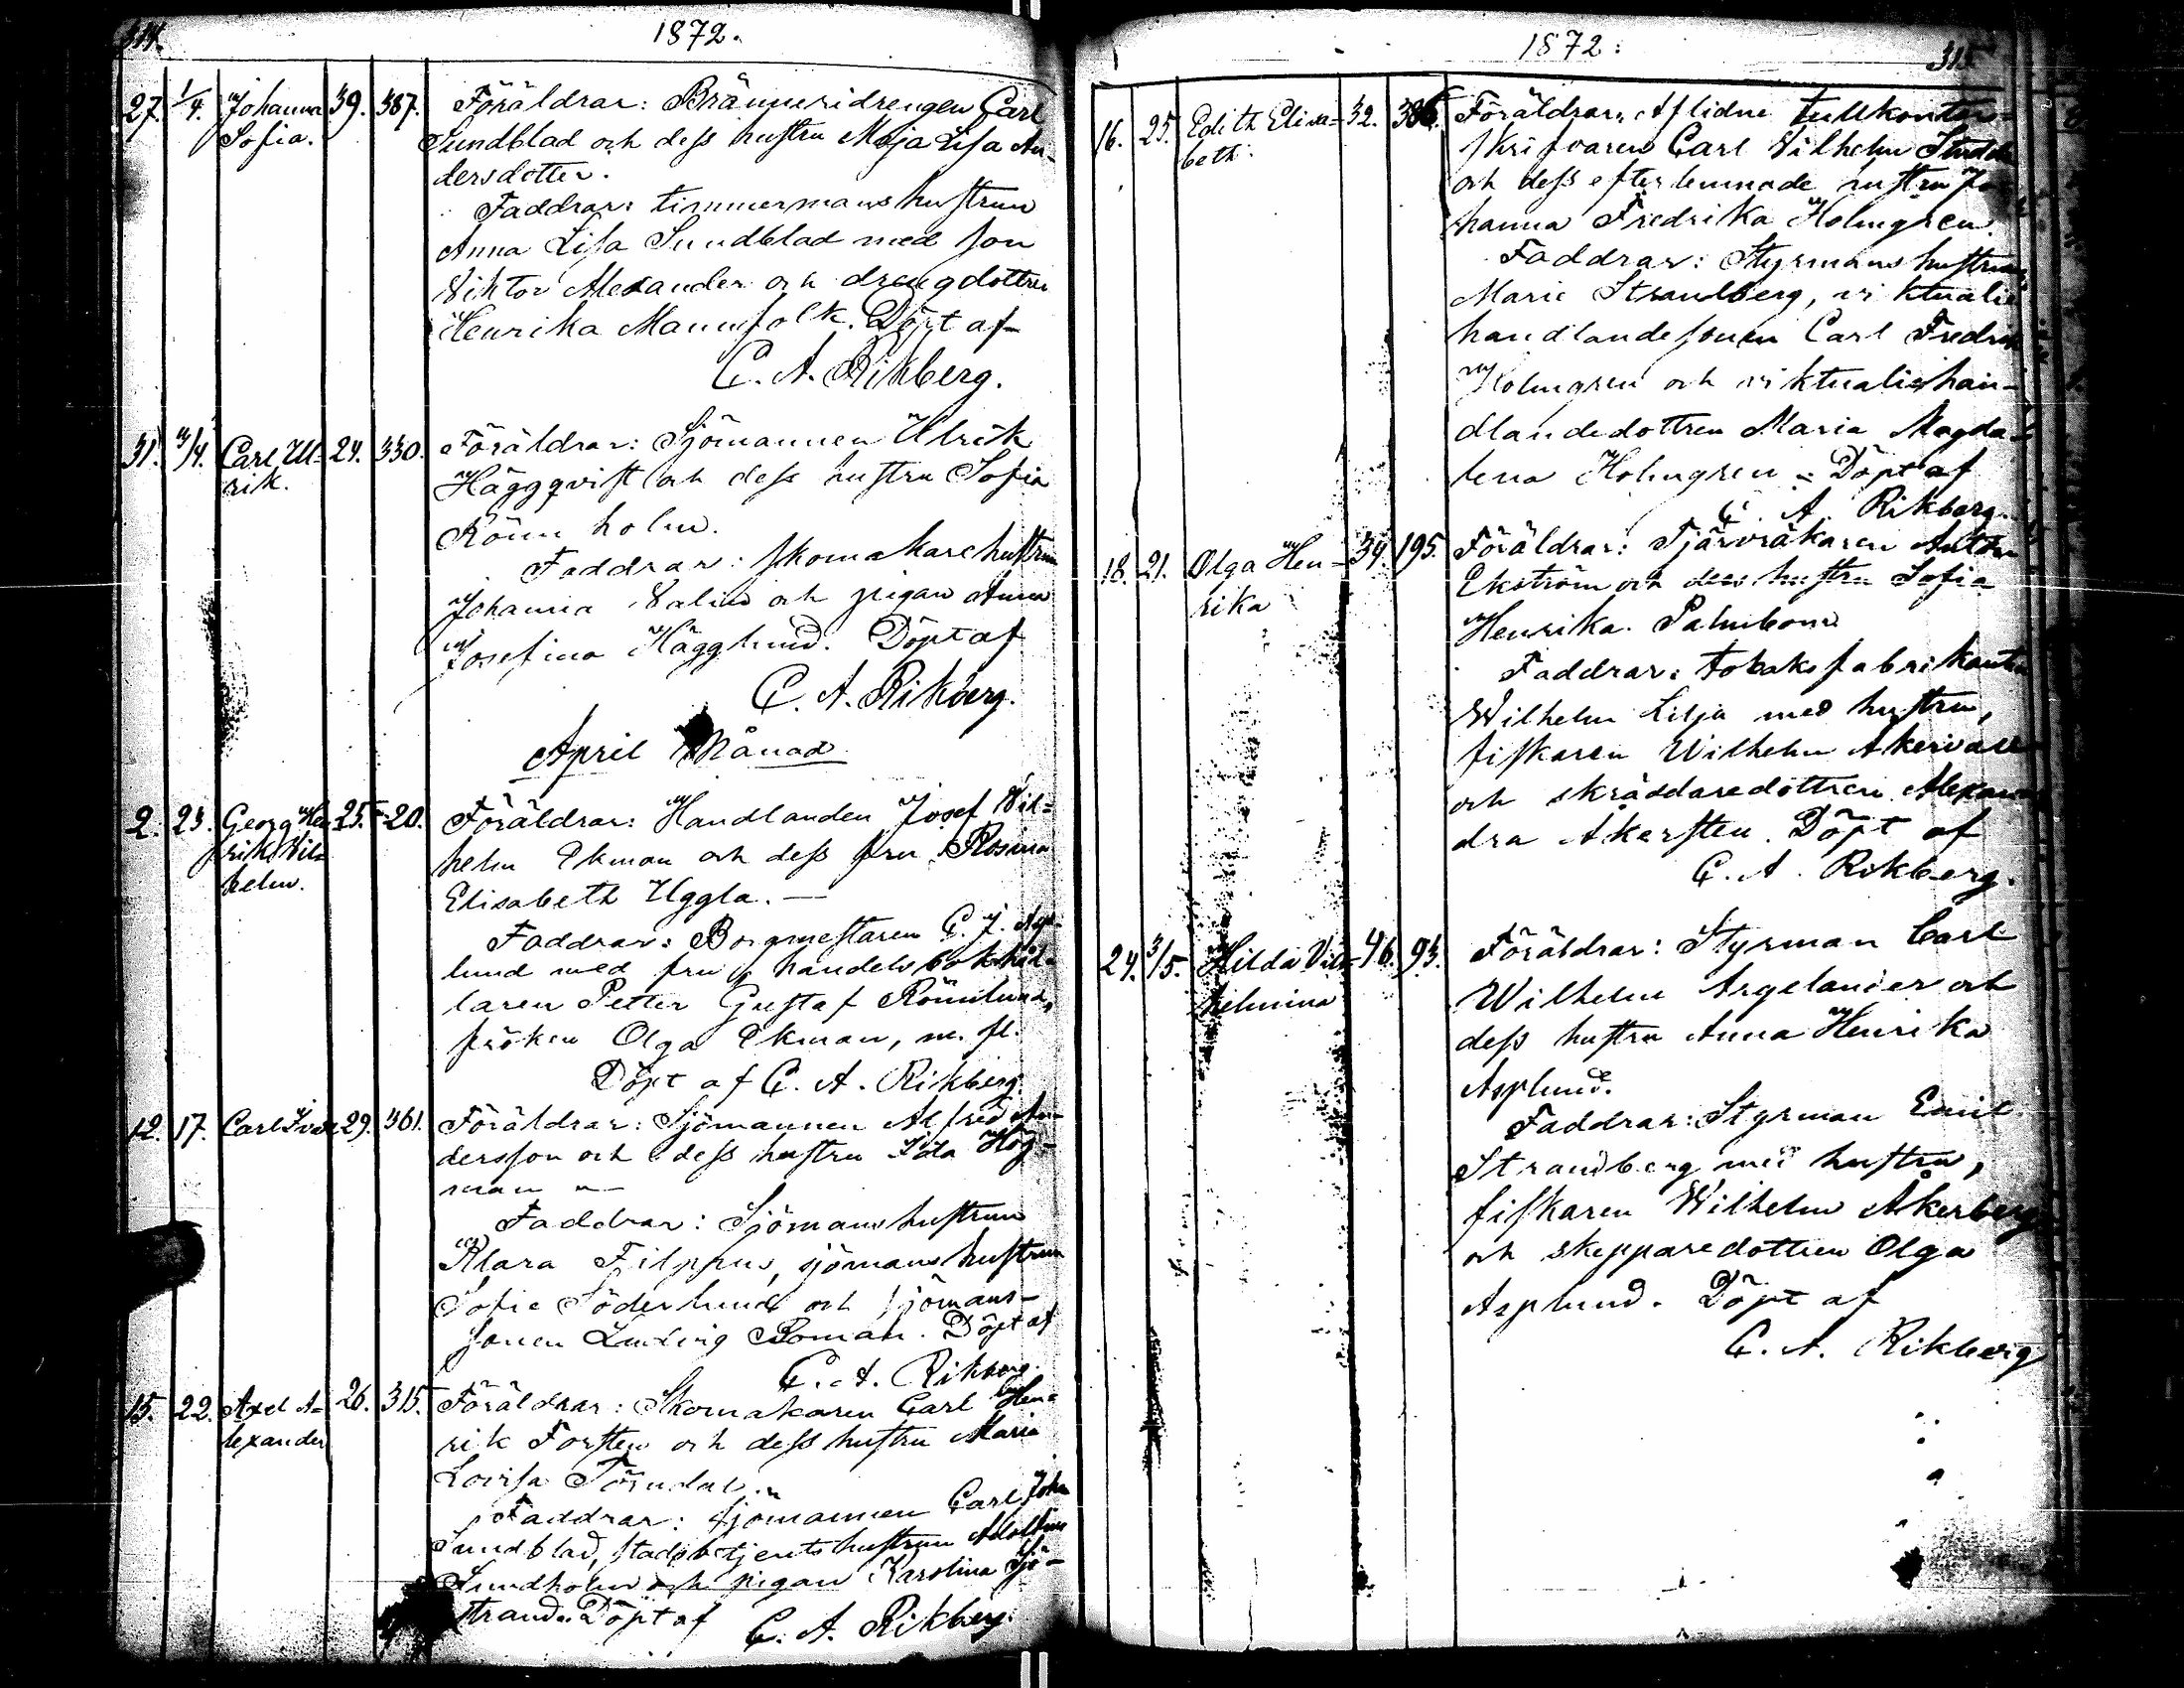 314.
1872.
27. 1/4. Johanna 39. 387. Föräldrar: Bränneridrengen Carl
Sofia. Sundblad och dess hustru Maja Lisa An-
dersdotter.
Faddrar: timmermanshustrun
Anna Lisa Sundblad med son
Viktor Alexander och drengdottren
Henrika Mannfolk. Döpt af
C. A. Rikberg.
31. /4. Carl Ul- 24. 330. Föräldrar: Sjömannen Ulrik
rik. Häggqvist och dess hustru Sofia
Rönnholm.
Faddrar: skomakarehustrun
Johanna Valin och pigan Anna
Josefina Hägglund. Döpt af
C. A. Rikberg.
April Månad
2. 23. Georg Hen- 25. 20. Föräldrar: Handlanden Josef Vil-
rik Vil- helm Ekman och dess fru Rosina
helm. Elisabeth Uggla. —
Faddrar: Borgmestaren C. J.
lund med fru, handelsbokhål-
laren Petter Gustaf Rönnlund,
fröken Olga Ekman, m. fl.
Döpt af C. A. Rikberg.
12. 17. Carl Ivar 29. 361. Föräldrar: Sjömannen Alfred An-
dersson och dess hustru Ida Hög-
man
Faddrar: Sjömanshustrun
Klara Filppus, sjömanshustrun
Sofie Söderlund och sjömans-
sonen Ludvig Boman. Döpt af
C. A. Rikberg.
15. 22. Axel A- 26. 315. Föräldrar: Skomakaren Carl Hen-
lexander rik Forsten och dess hustru Maria
Lovisa Törndal.
Faddrar: sjömannen Carl John
Sundblad, stadsbetjentshustrun Adolfina
Sundholm och pigan Karolina Sjö-
strand. Döpt af C. A. Rikberg.
1872.
315.
16. 25. Edith Elisa- 32. 386. Föräldrar: Aflidne tullkontors-
beth. skrifvaren Carl Vilhelm
och dess efterlemnade hustru Jo-
hanna Fredrika Holmgren.
Faddrar: Styrmanshustrun
Marie Strandberg, viktualie-
handlandesonen Carl Fredrik
Holmgren och viktualiehan-
dlandedottren Maria Magda-
lena Holmgren - Döpt af
C. A. Rikberg.
18. 21. Olga Hen- 34. 195. Föräldrar: Tjärvräkaren Anton
rika Ekström och dess hustru Sofia
Henrika Palmbom
Faddrar: tobaksfabrikanten
Wilhelm Lilja med hustru,
fiskaren Wilhelm Åkervall
och skräddaredottren Alexan-
dra Åkersten. Döpt af
C. A. Rikberg.
24. 3/5. Hilda Vil- 46. 93. Föräldrar: Styrman Carl
helmina Wilhelm Argelander och
dess hustru Anna Henrika
Asplund.
Faddrar: Styrman Emil
Strandberg med hustru,
fiskaren Wilhelm Åkerberg
och skepparedottren Olga
Asplund. Döpt af
C. A. Rikberg